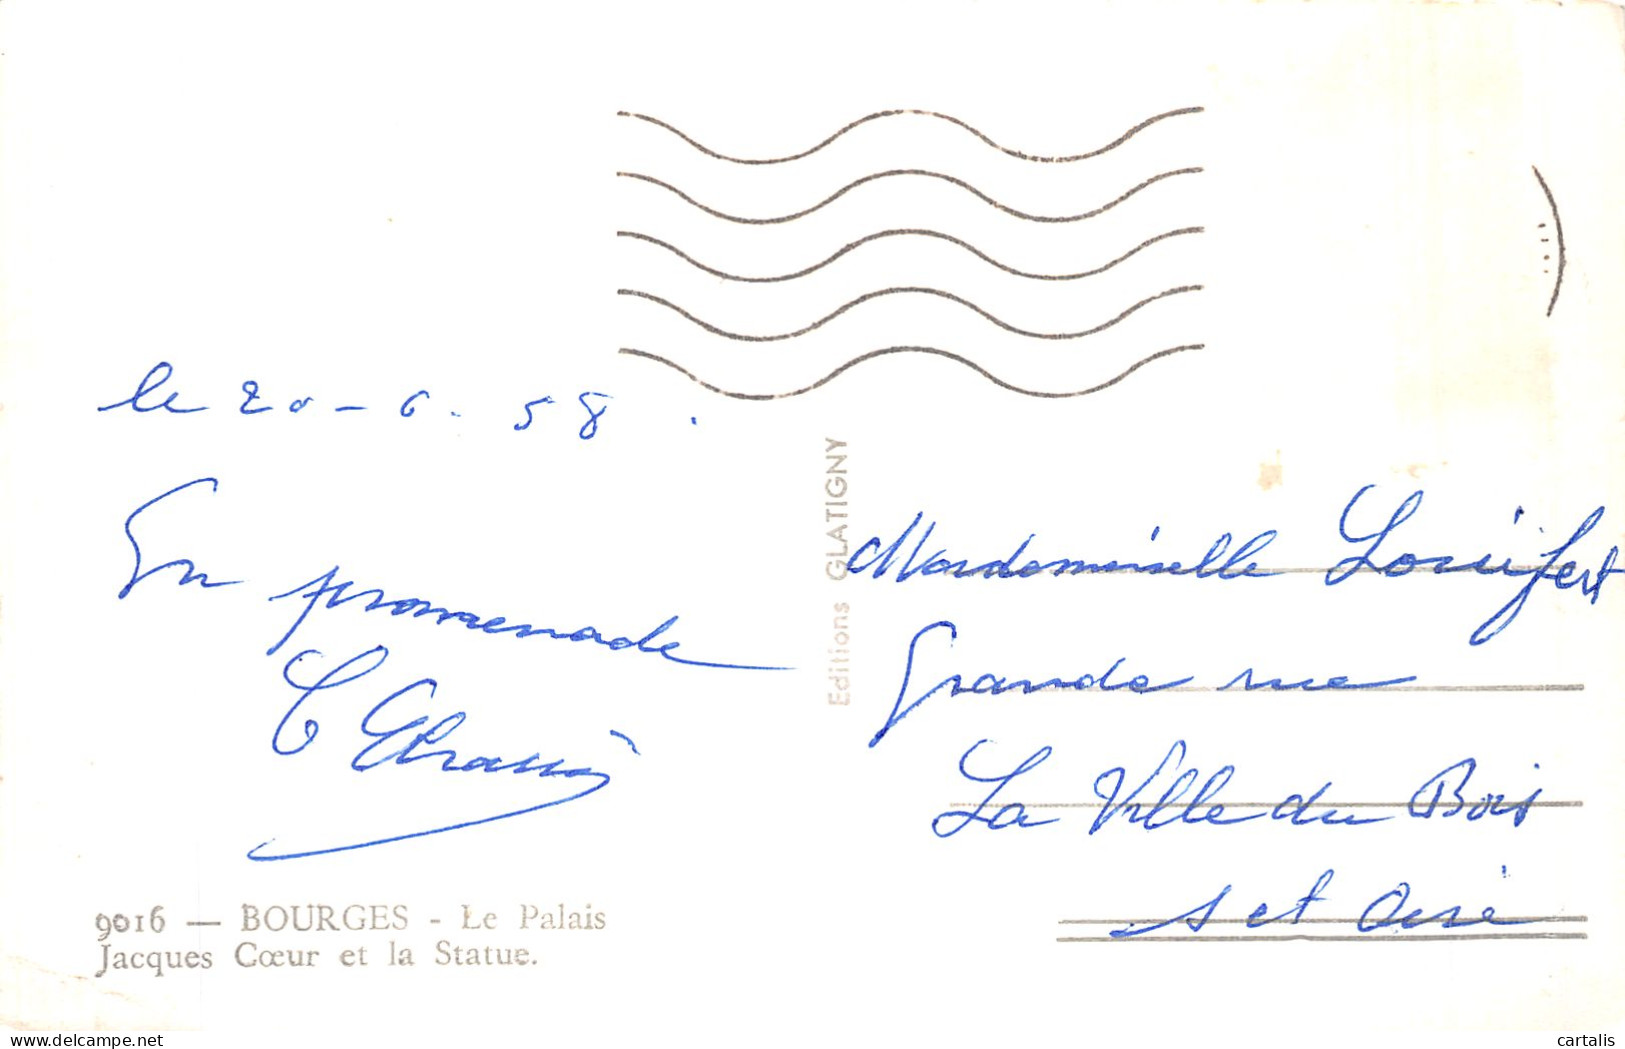 le 20-6.58.
En promenade
9016 — BOURGES - Le Palais
Jacques Cœur et la Statue.
Editions GLATIGNY
Mademoiselle
Grande rue
La Ville du Bois
s et Oise
delcampe.net
cartalis